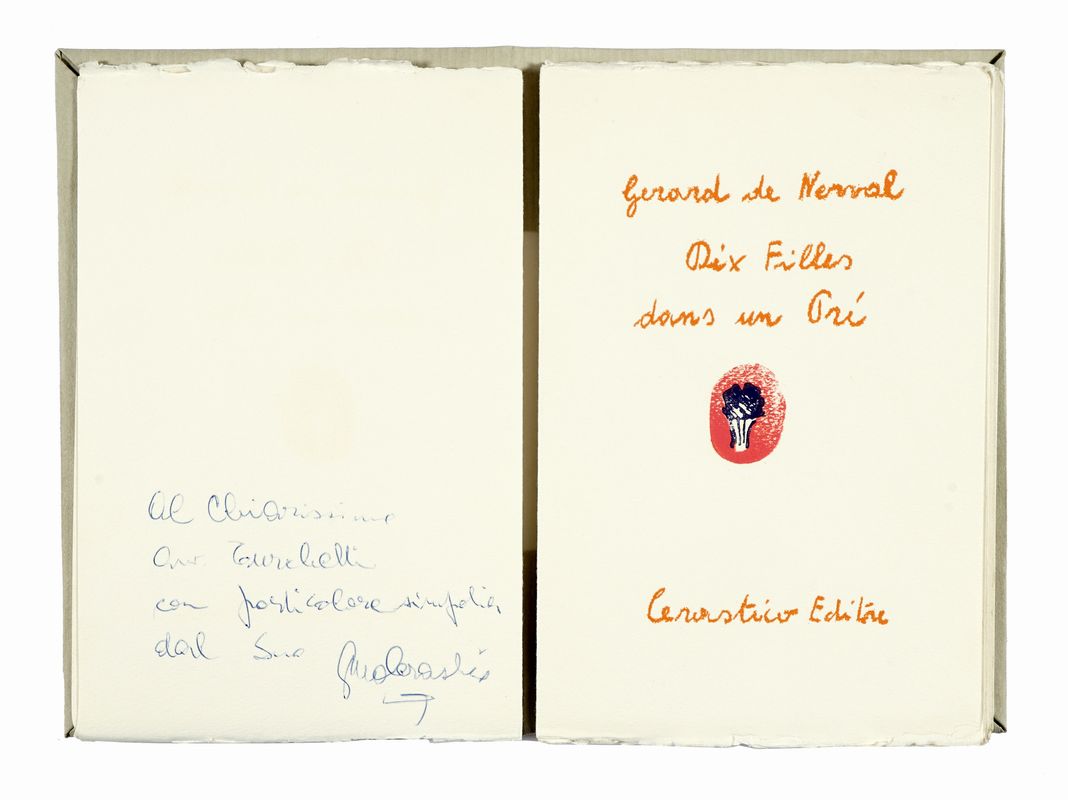 Al Chiarissimo
Avv. Turchetti
con particolare simpatia
dal Suo
Gerard de Nerval
Dix Filles
dans un Pré
Cerastico Editore